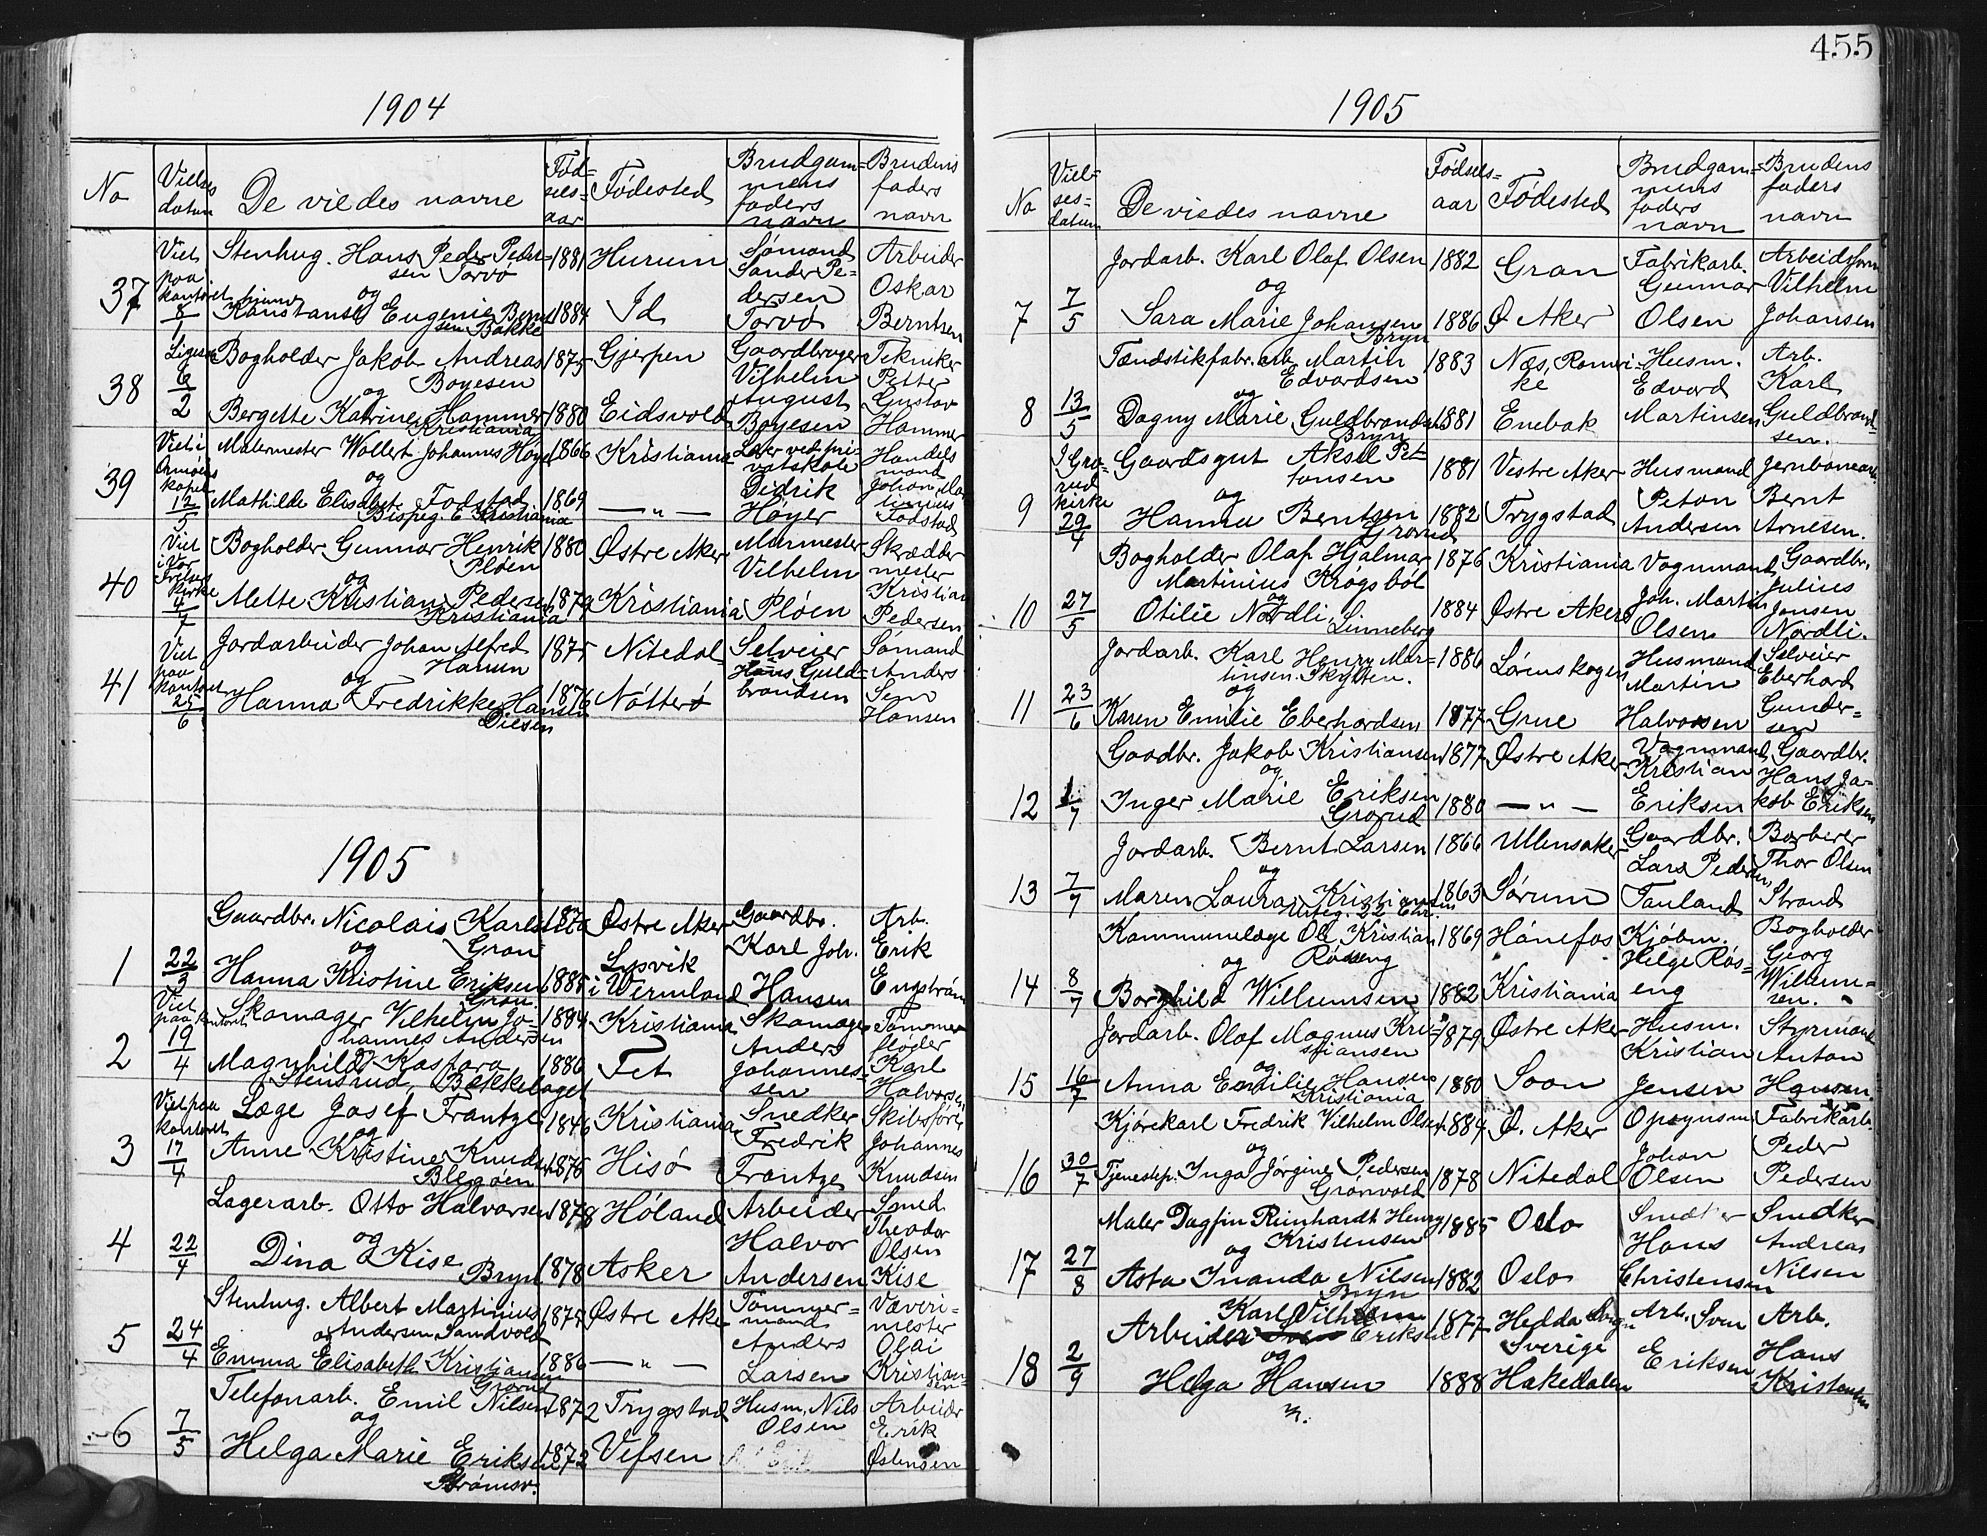 455
1904
No
Vielses datum
De viedes navne
Fød=sels=aar
Fødested
Brudgam=mens faders navn
Brudens faders navn
37
Viet paa kontoret 8/1
Stenhug. Hans Peder Peder=sen Torvø
og
Konstanse Eugenie Bernt=sen Bakke
1881
1884
Hurum
Id
Sømand Sander Pe=dersen Torvø
Arbeider Oskar Berntsen
38
6/2
Bogholder Jakob Andreas Boyesen
og
Bergette Katrine Hammer
Kristiania
1875
1880
Gjerpen
Eidsvold
Gaardbruger Vilhelm August Boyesen
Tekniker Petter Gustav Hammer
39
Viet i kapel 12/5
Malermester Wollert Johannes Høyer
og
Mathilde Elisabet Fodstad
Bispeg. 6 Kristiania
1866
1869
Kristiania
— " —
Lærer ved pri=vatskole Didrik Høyer
Handels mand Johan Mar=tinius Fodstad
40
Viet i Vor Frelsers kirke 4/7
Bogholder Gunnar Henrik Pløen
og
Mette Kristian Pedersen
Kristiania
1880
1879
Østre Aker
Kristiania
Murmester Vilhelm Pløen
Skrædder mester Kristian Pedersen
41
Viet paa kontoret 25/6
Jordarbeider Johan Alfred Hansen
og
Hanna Fredrikke Hansen
Diesen
1875
1876
Nitedal
Nøtterø
Selveier Hans Guld=brandsen
Sømand Anders Sem Hansen
1905
1
22/3
Gaardbr. Nicolais Karlsen Gran
og
Hanna Kristine Eriksen
Gran.
1870
1885
Østre Aker
Lysvik i Wermland
Gaardbr. Karl Joh. Hansen
Arb. Erik Engstrøm
2
Viet paa kontoret 19/4
Skomager Vilhelm Jo=hannes Andersen
og
Magnhild Kaspara Stensrud, Bækkelaget
1884
1886
Kristiania
Fet
Skomager Anders Johannes=sen
Tømmer fløder Karl Halvorsen
3
Viet paa kontoret 17/4
Læge Josef Frantze
og
Anne Kristine Knudsen
Blegøen
1846
1876
Kristiania
Hisø
Snedker Fredrik Frantze
Skibsfører Johannes Knudsen
4
22/4
Lagerarb. Otto Halvorsen
og
Dina Kise
Bryn
1878
1878
Høland
Asker
Arbeider Halvor Andersen
Smed Theodor Olsen Kise
5
24/4
Stenhug. Albert Martinius Andersen Sandvold
og
Emma Elisabeth Kristiansen
Grorud
1877
1886
Østre Aker
— " —
Tømmer=mand Anders Larsen
Væveri=mester Olai Kristian=sen
6
7/5
Telefonarb. Emil Nilsen
og
Helga Marie Eriksen
Strømsv.
1872
1872
Trygstad
Vefsen
Husm. Nils Olsen
Arbeider Erik Østensen
1905
No
Viel=ses=datum
De viedes navne
Fødsels=aar
Fødested
Brudgam=mens faders navn
Brudens faders navn
7
7/5
Jordarb. Karl Olaf Olsen
og
Sara Marie Johansen
Bryn
1882
1886
Gran
Ø Aker
Fabrikarb. Gunnar Olsen
Arbeidsform Vilhelm Johansen
8
13/5
Tændstikfabr. arb. Martin Edvardsen
og
Dagny Marie Guldbrandsen
Bryn
1883
1881
Næs, Romeri=ke
Enebak
Husm. Edvard Martinsen
Arb. Karl Guldbrand=sen.
9
I Gro=rud kirke 29/4
Gaardsgut Aksel Pet=tonsen
og
Hanna Berntsen
Grorud
1881
1882
Vestre Aker
Trygstad
Husmand Peton Andersen
Jernbanearb Bernt Arnesen.
10
27/5
Bogholder Olaf Hjalmar Martinius Krogsbøl
og
Otilie Nordli
Linneberg
1876
1884
Kristiania
Østre Aker
Vognmand Joh. Martin Olsen
Gaardbr. Julius Jensen Nordli.
11
23/6
Jordarb. Karl Henry Mar=tinsen Skytten.
og
Karen Emilie Eberhardsen
1886
1877
Lørenskogen
Grue
Husmand Martin Halvorsen
Selveier Eberhard Gunder=sen
12
1/7
Gaadbr. Jakob Kristiansen
og
Inger Marie Eriksen
Grorud
1877
1880
Østre Aker
— " —
Vognmand Kristian Eriksen
Gaardbr. Hans Ja=kob Eriksen
13
7/7
Jordarb. Bernt Larsen
og
Maren Laura Kristiansen
Urteg. 22 Chr.
1866
1863
Ullensaker
Sørum
Gaardbr. Lars Pedersen Tauland
Barberer Thor Olsen Strand
14
8/7
Kommunelæge Ole Kristian Røseng
og
Borghild Willumsen
1869
1882
Hønefos
Kristiania
Kjøbm. Helge Røs=eng
Bogholder Georg Willum=sen.
15
16/7
Jordarb. Olaf Magnus Kri=stiansen
og
Anna Emilie Hansen
Kristiania
1879
1880
Østre Aker
Soon
Husm. Kristian Jensen
Styrmand Anton Hansen
16
30/7
Kjørekarl Fredrik Vilhelm Olsen
og
Tjenestep. Inga Jørgine Pedersen
Grønvold
1884
1878
Ø. Aker
Nitedal
Opsynsm Johan Olsen
Fabrikarb. Peder Pedersen
17
27/8
Maler Dagfin Reinhardt Henry Kristensen
og
Asta Inanda Nilsen
Bryn
1885
1882
Oslo
Oslo
Snedker Hans Christensen
Snedker Andreas Nilsen
18
2/9
Karl Vilhelm
Arbeider Sven Eriksen
og
Helga Hansen
1877
1888
Hedda Sverige
Hakedalen
Arb. Sven Eriksen
Arb. Hans Kristensen